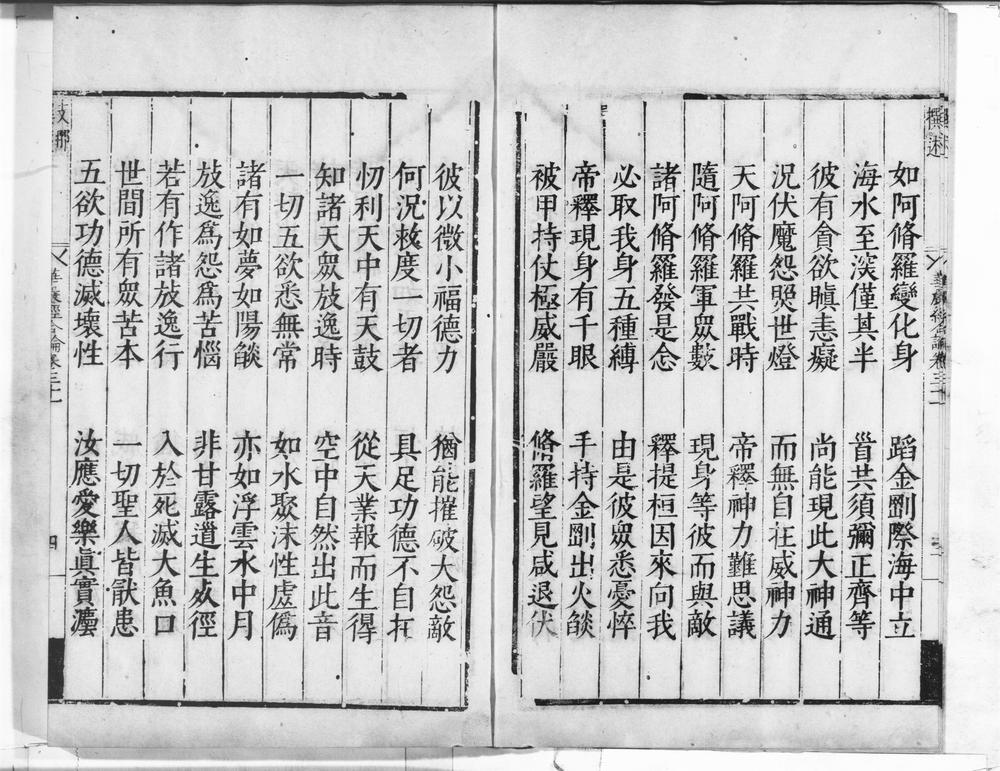 如阿脩羅變化身　蹈金剛際海中立
海水至深僅其半　首共須彌正齊等
彼有貪欲瞋恚癡　尚能現此大神通
況伏魔怨照世燈　而無自在威神力
天阿脩羅共戰時　帝釋神力難思議
隨阿脩羅軍眾數　現身等彼而與敵
諸阿脩羅發是念　釋提桓因來向我
必取我身五種縛　由是彼眾悉憂悴
帝釋現身有千眼　手持金剛出火燄
被甲持仗極威嚴　脩羅望見咸退伏
彼以微小福德力　猶能摧破大怨敵
何況救度一切者　具足功德不自在
忉利天中有天鼓　從天業報而生得
知諸天眾放逸時　空中自然出此音
一切五欲悉無常　如水聚沫性虛偽
諸有如夢如陽燄　亦如浮雲水中月
放逸為怨為苦惱　非甘露道生死徑
若有作諸放逸行　入於死滅大魚口
世間所有眾苦本　一切聖人皆厭患
五欲功德滅壞性　汝應愛樂真實法
華嚴經合論卷三十二
四